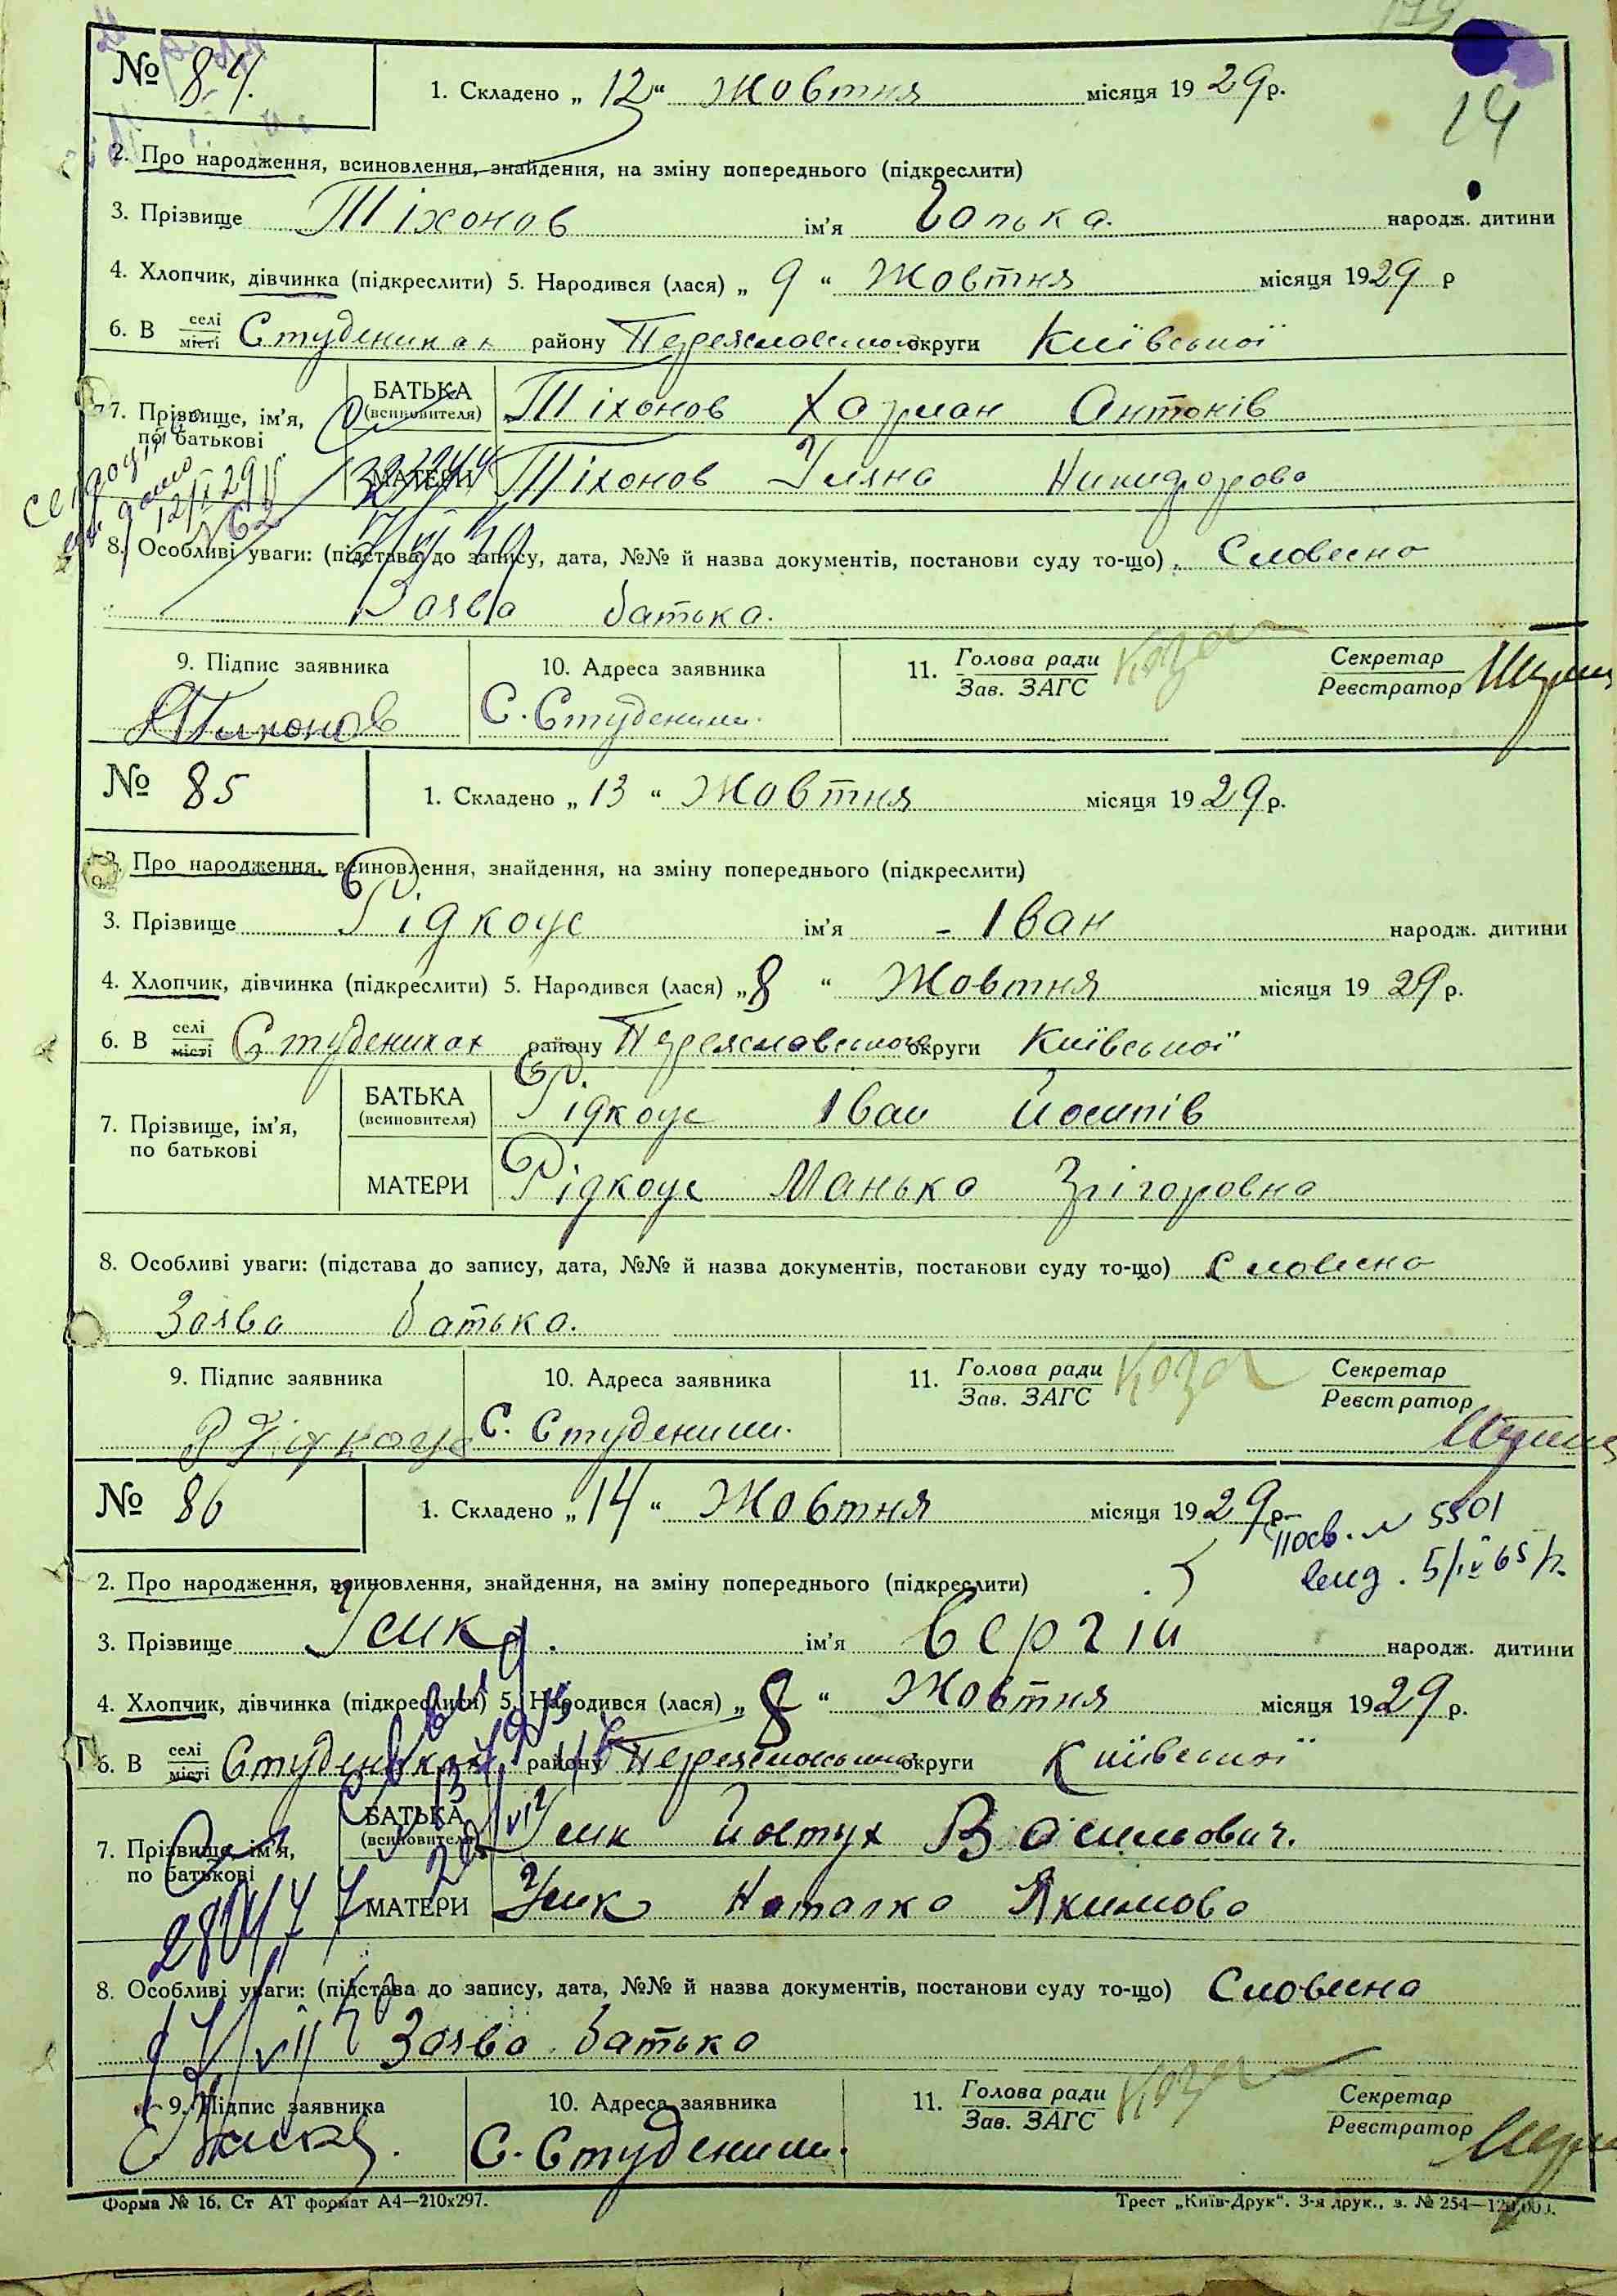 14
№ 84. 1. Складено „ 12 “ Жовтня місяця 1929 р.
2. Про народження, всиновлення, знайдення, на зміну попереднього (підкреслити)
3. Прізвище Тіхонов ім'я Галька. народж. дитини
4. Хлопчик, дівчинка (підкреслити) 5. Народився (лася) „ 9 “ Жовтня місяця 1929 р
6. В селі місті Студениках району Переяславського округи Київської
7. Прізвище, ім'я, по батькові
БАТЬКА (всиновителя) Тіхонов Харман Антонів
МАТЕРИ Тіхонов Уляна Никифорова
8. Особливі уваги: (підстава до запису, дата, №№ й назва документів, постанови суду то-що) Словесна
Заява батька.
9. Підпис заявника 10. Адреса заявника 11. Голова ради Зав. ЗАГС Секретар Реєстратор
Тихонов С. Студеники.
№ 85 1. Складено „ 13 “ Жовтня місяця 1929 р.
2. Про народження, всиновлення, знайдення, на зміну попереднього (підкреслити)
3. Прізвище Рідкоус ім'я - Іван народж. дитини
4. Хлопчик, дівчинка (підкреслити) 5. Народився (лася) „ 8 “ Жовтня місяця 1929 р.
6. В селі місті Студениках району Переяславського округи Київської
7. Прізвище, ім'я, по батькові
БАТЬКА (всиновителя) Рідкоус Іван Йосипів
МАТЕРИ Рідкоус Манька Грігоровна
8. Особливі уваги: (підстава до запису, дата, №№ й назва документів, постанови суду то-що) Словесна
Заява батька.
9. Підпис заявника 10. Адреса заявника 11. Голова ради Зав. ЗАГС Секретар Реєстратор
Рідкоус С. Студеники.
№ 86 1. Складено „ 14 “ Жовтня місяця 1929 р.
посв. № 5501
вид. 5/IV 65 р.
2. Про народження, всиновлення, знайдення, на зміну попереднього (підкреслити)
3. Прізвище Усик. ім'я Сергій народж. дитини
4. Хлопчик, дівчинка (підкреслити) 5. Народився (лася) „ 8 “ Жовтня місяця 1929 р.
6. В селі місті Студениках району Переяславського округи Київської
7. Прізвище, ім'я, по батькові
БАТЬКА (всиновителя) Усик Йовтух Васильович.
МАТЕРИ Усик Наталка Якимова
8. Особливі уваги: (підстава до запису, дата, №№ й назва документів, постанови суду то-що) Словесна
Заява батька
9. Підпис заявника 10. Адреса заявника 11. Голова ради Зав. ЗАГС Секретар Реєстратор
С. Студеники.
Форма № 16. Ст АТ формат А4—210х297. Трест „Київ-Друк“. 3-я друк., з. № 254—